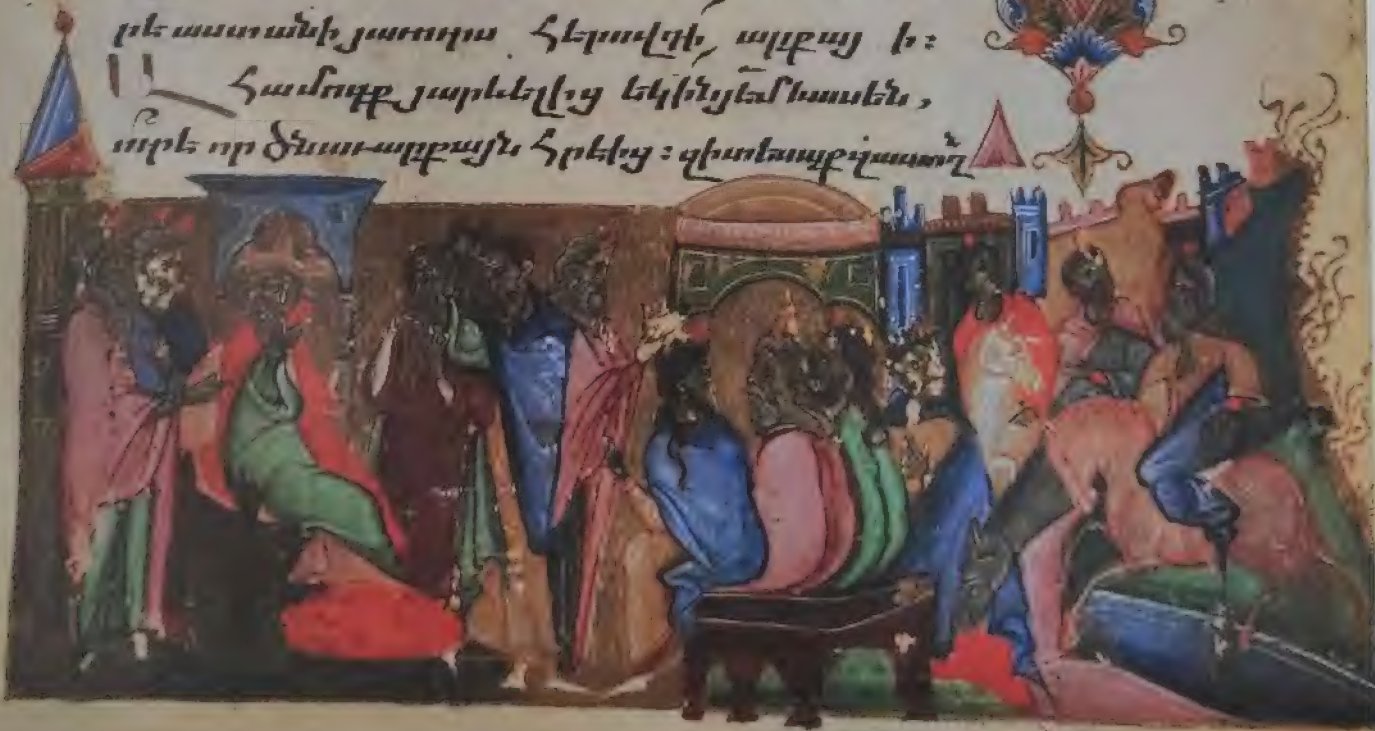 րէաստանի յաւուրս Հերովդի արքայի։
Ահա մոգք յարևելից եկին յե՟մ և ասեն,
ուր է որ ծնաւ արքայն Հրէից։ զի տեսաք զաստղ